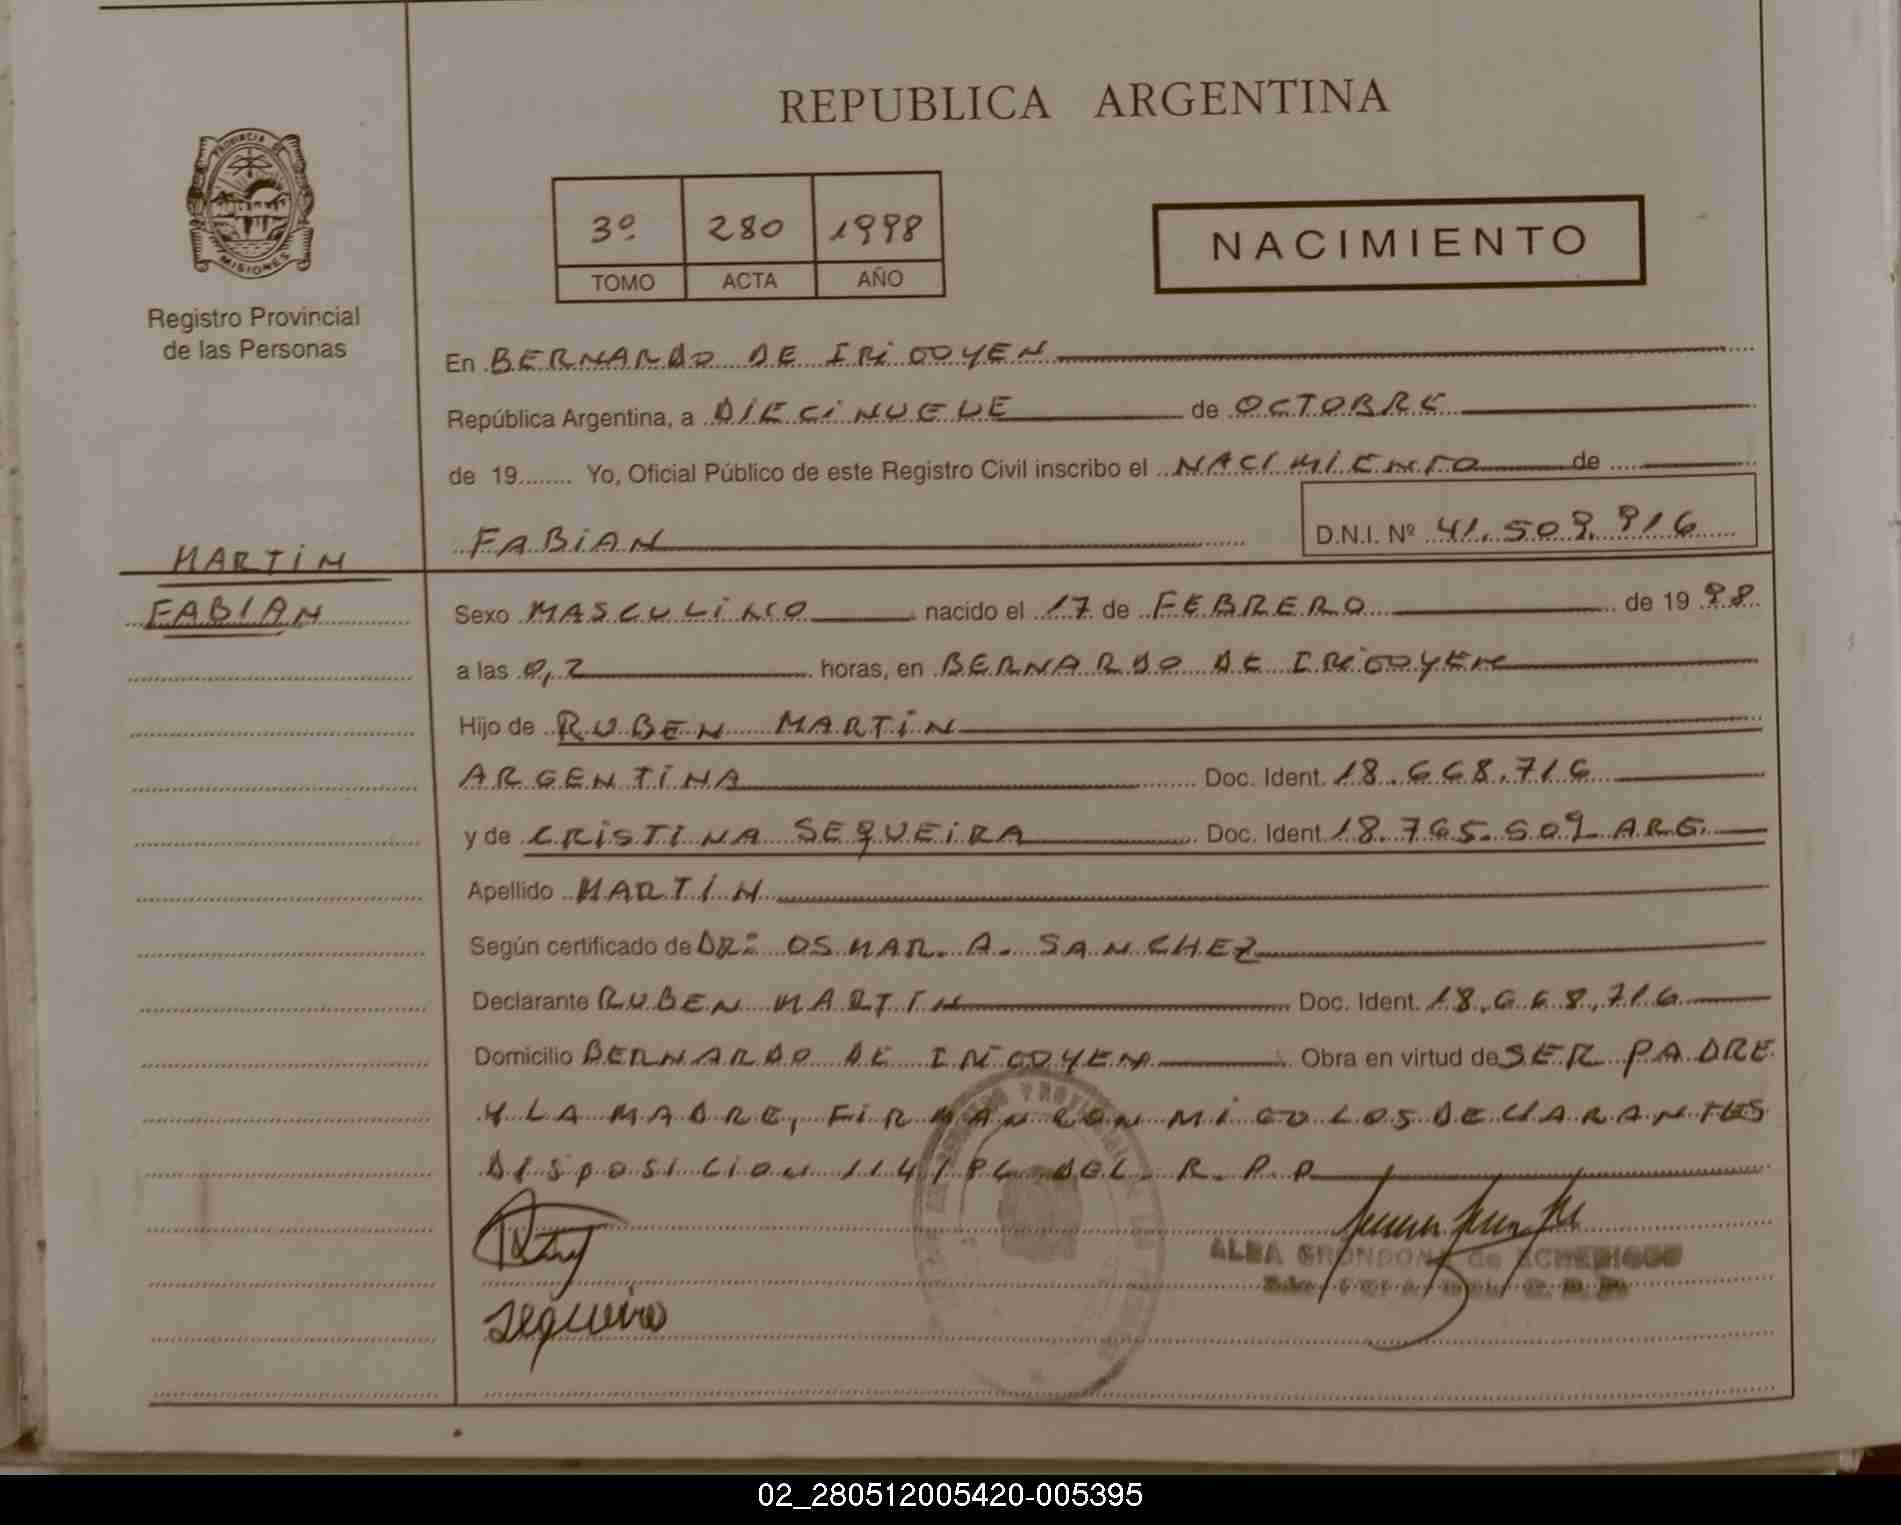 REPUBLICA ARGENTINA
PROVINCIA DE
MISIONES
Registro Provincial
de las Personas
3º 280 1998
TOMO ACTA AÑO
NACIMIENTO
En BERNARDO DE IRIGOYEN
República Argentina, a DIECINUEVE de OCTOBRE
de 19........ Yo, Oficial Público de este Registro Civil inscribo el NACIMIENTO de
FABIAN
D.N.I. Nº 41.509.916
MARTIN
FABIAN
Sexo MASCULINO nacido el 17 de FEBRERO de 1998
a las 0,2 horas, en BERNARDO DE IRIGOYEN
Hijo de RUBEN MARTIN
ARGENTINA Doc. Ident. 18.668.716
y de CRISTINA SEQUEIRA Doc. Ident. 18.765.509 ARG.
Apellido MARTIN
Según certificado de DR: OSMAR. A. SANCHEZ
Declarante RUBEN MARTIN Doc. Ident. 18.668.716
Domicilio BERNARDO DE IRIGOYEN Obra en virtud de SER PADRE
Y LA MADRE, FIRMAN CON MIGO LOS DECLARANTES
DISPOSICION 114/96 DEL R.P.P
ALBA GRONDONA de
Sequeira
02_280512005420-005395